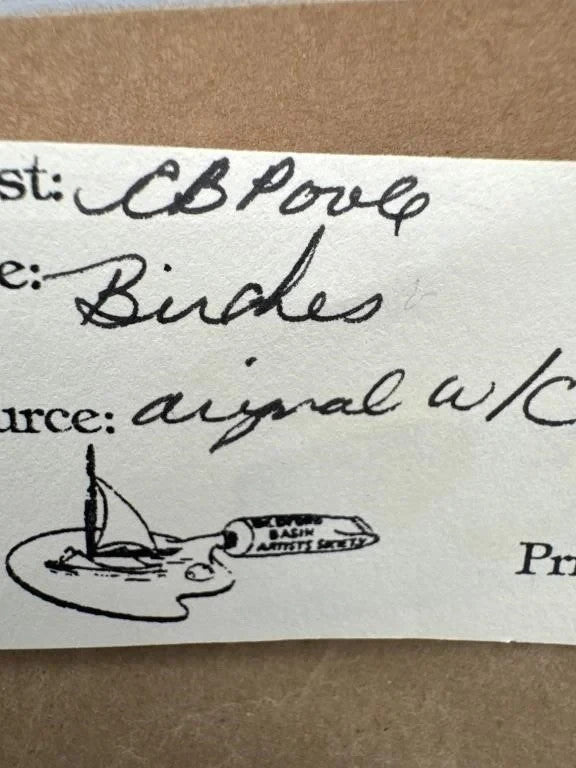 st: CB Poole
e: Birches
urce: original w/c
BASIN
ARTISTS SOCIETY
Pri